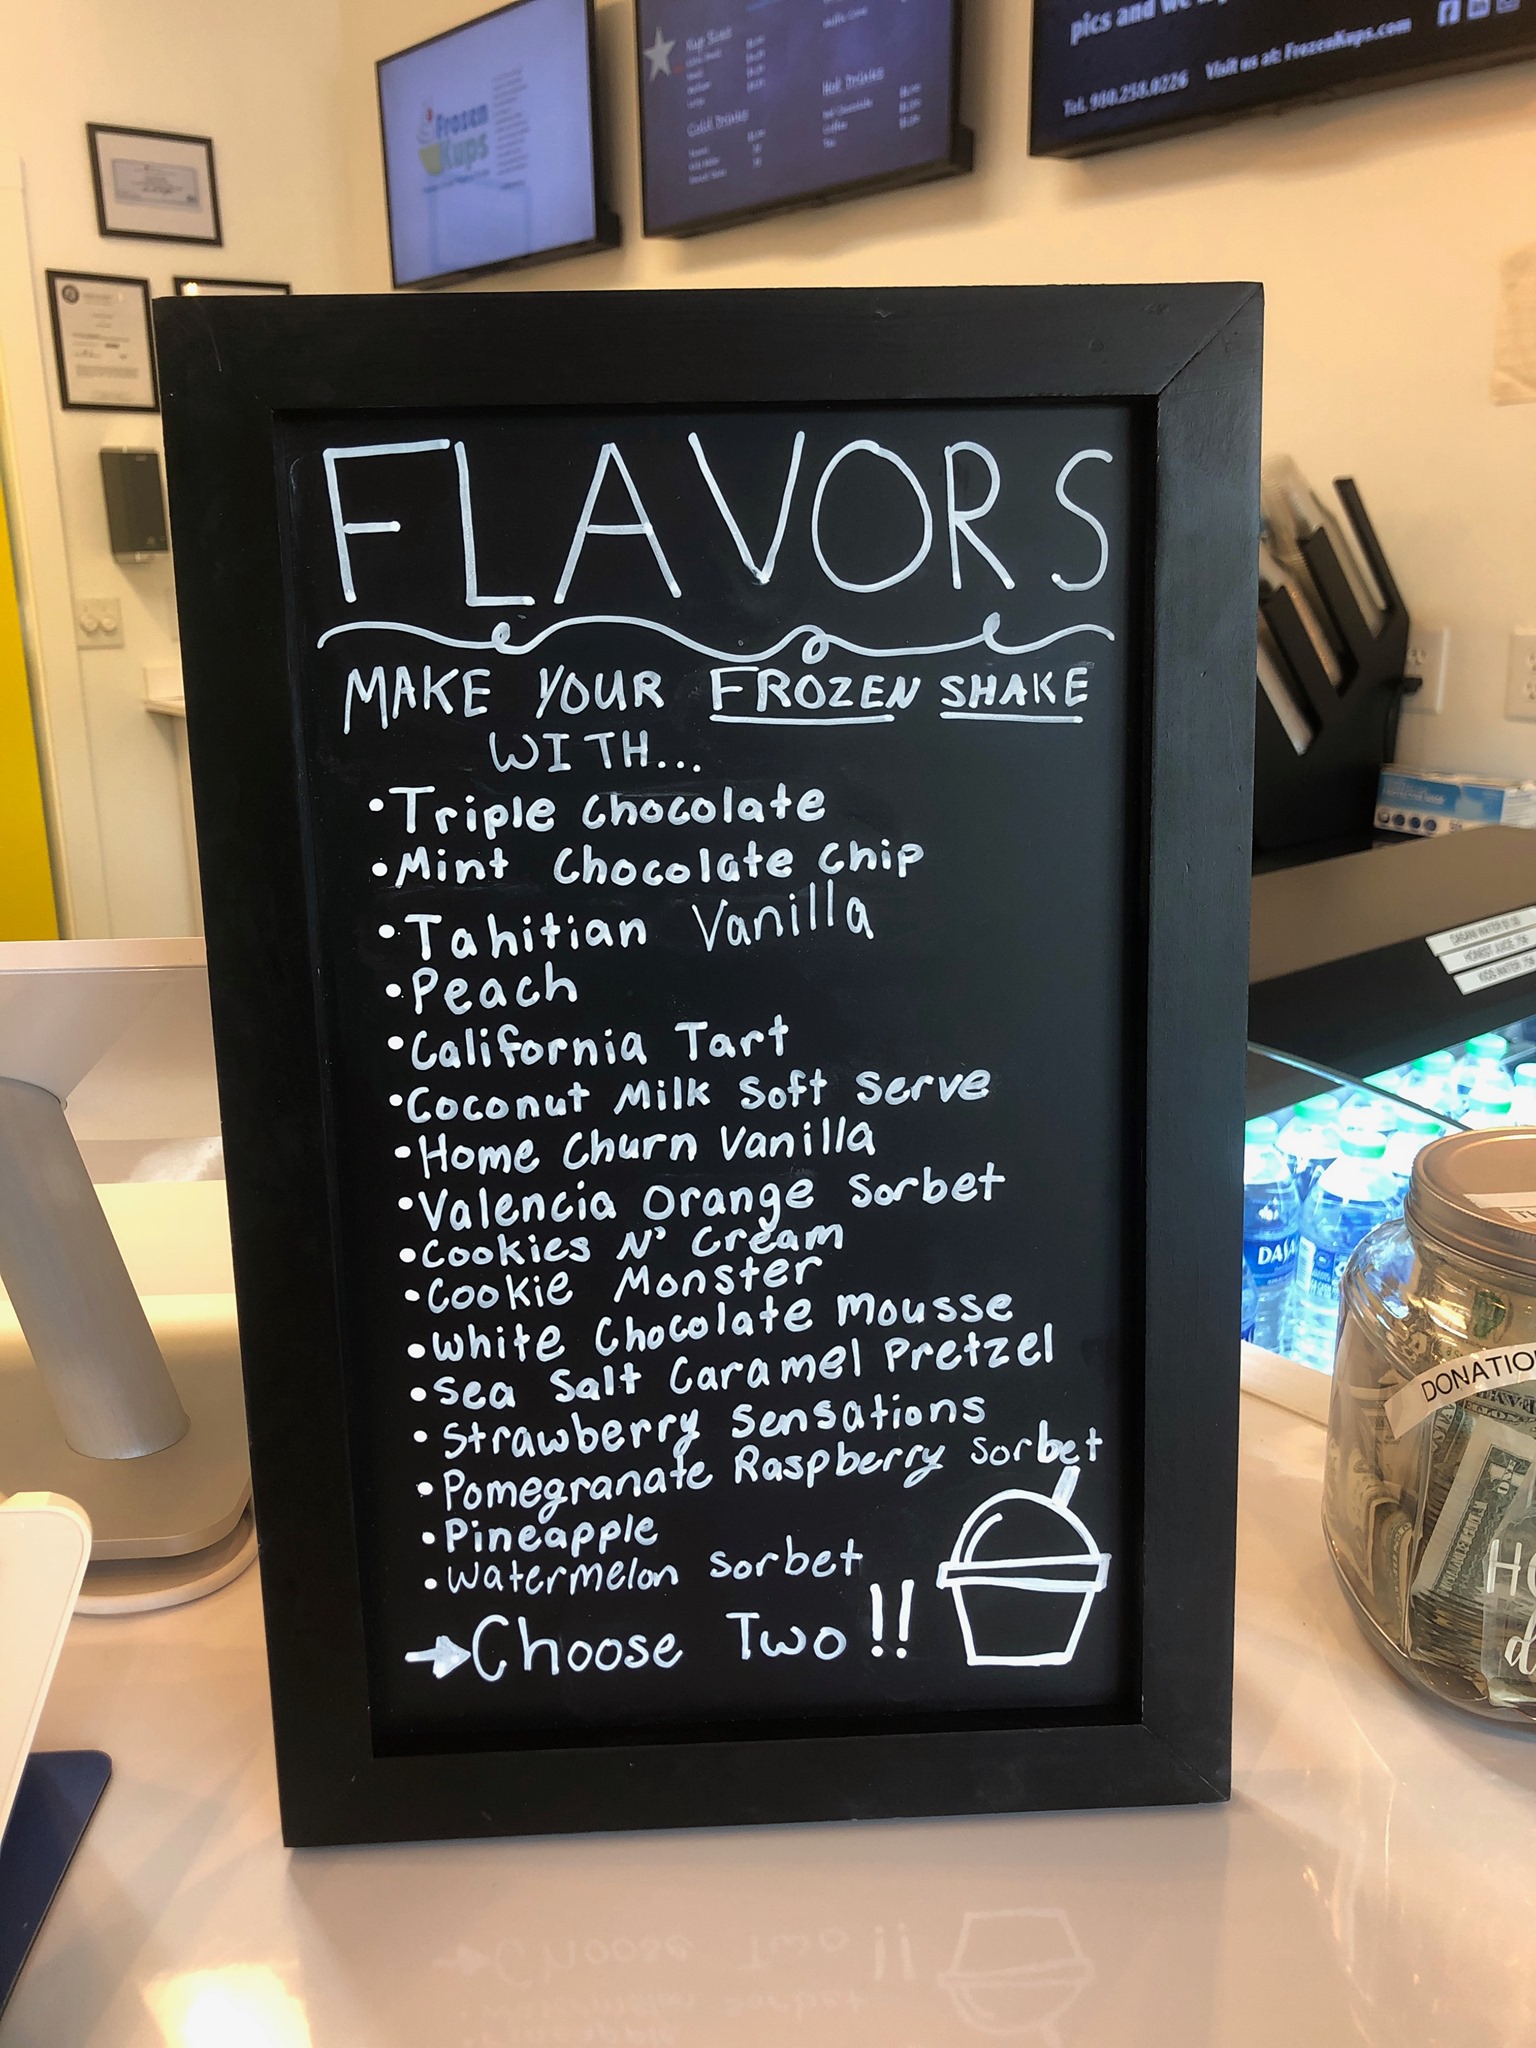 Frozen
Kups
Kup Sizes
Cold Drinks
Hot Drinks
Hot Chocolate
Coffee
Tea
pics and we
Tel. 980.258.0226 Visit us at: FrozenKups.com
FLAVORS
MAKE YOUR FROZEN SHAKE
WITH...
• Triple Chocolate
• Mint Chocolate Chip
• Tahitian Vanilla
• Peach
• California Tart
• Coconut Milk Soft Serve
• Home Churn Vanilla
• Valencia Orange Sorbet
• Cookies N' Cream
• Cookie Monster
• White Chocolate Mousse
• Sea Salt Caramel Pretzel
• Strawberry Sensations
• Pomegranate Raspberry Sorbet
• Pineapple
• Watermelon Sorbet
→ Choose Two!!
HONEST JUICE
KIDS WATER
DASA
DONATIO